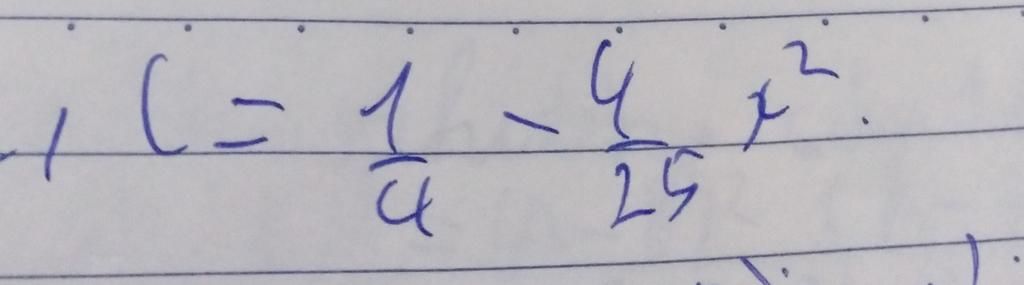 , C = 1/4 - 4/25 x².